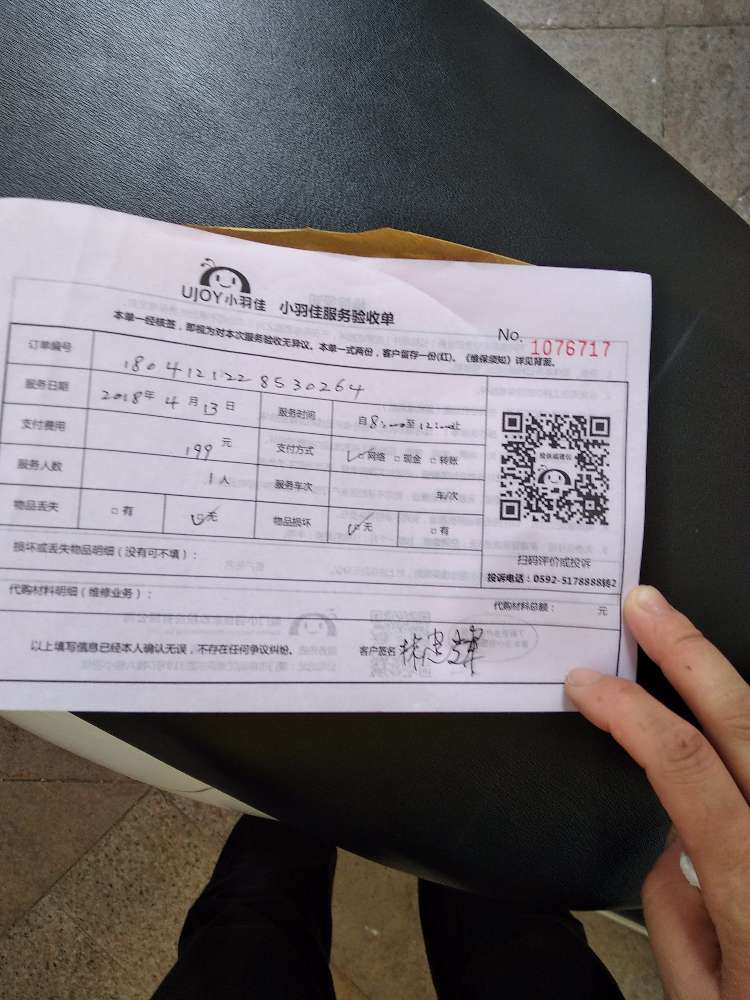 UJOY小羽佳 小羽佳服务验收单
No. 1076717
本单一经核签，即视为对本次服务验收无异议。本单一式两份，客户留存一份(红)。《维保须知》详见背面。
订单编号 1804121228530264
服务日期 2018年4月13日 服务时间 自8:00至12:00止
支付费用 199元 支付方式 ☑网络 □现金 □转账
服务人数 1人 服务车次 车/次
物品丢失 □有 ☑无 物品损坏 ☑无 □有
扫码评价或投诉
投诉电话：0592-5178888转2
损坏或丢失物品明细（没有可不填）：
代购材料明细（维修业务）： 代购材料总额： 元
以上填写信息已经本人确认无误，不存在任何争议纠纷。 客户签名